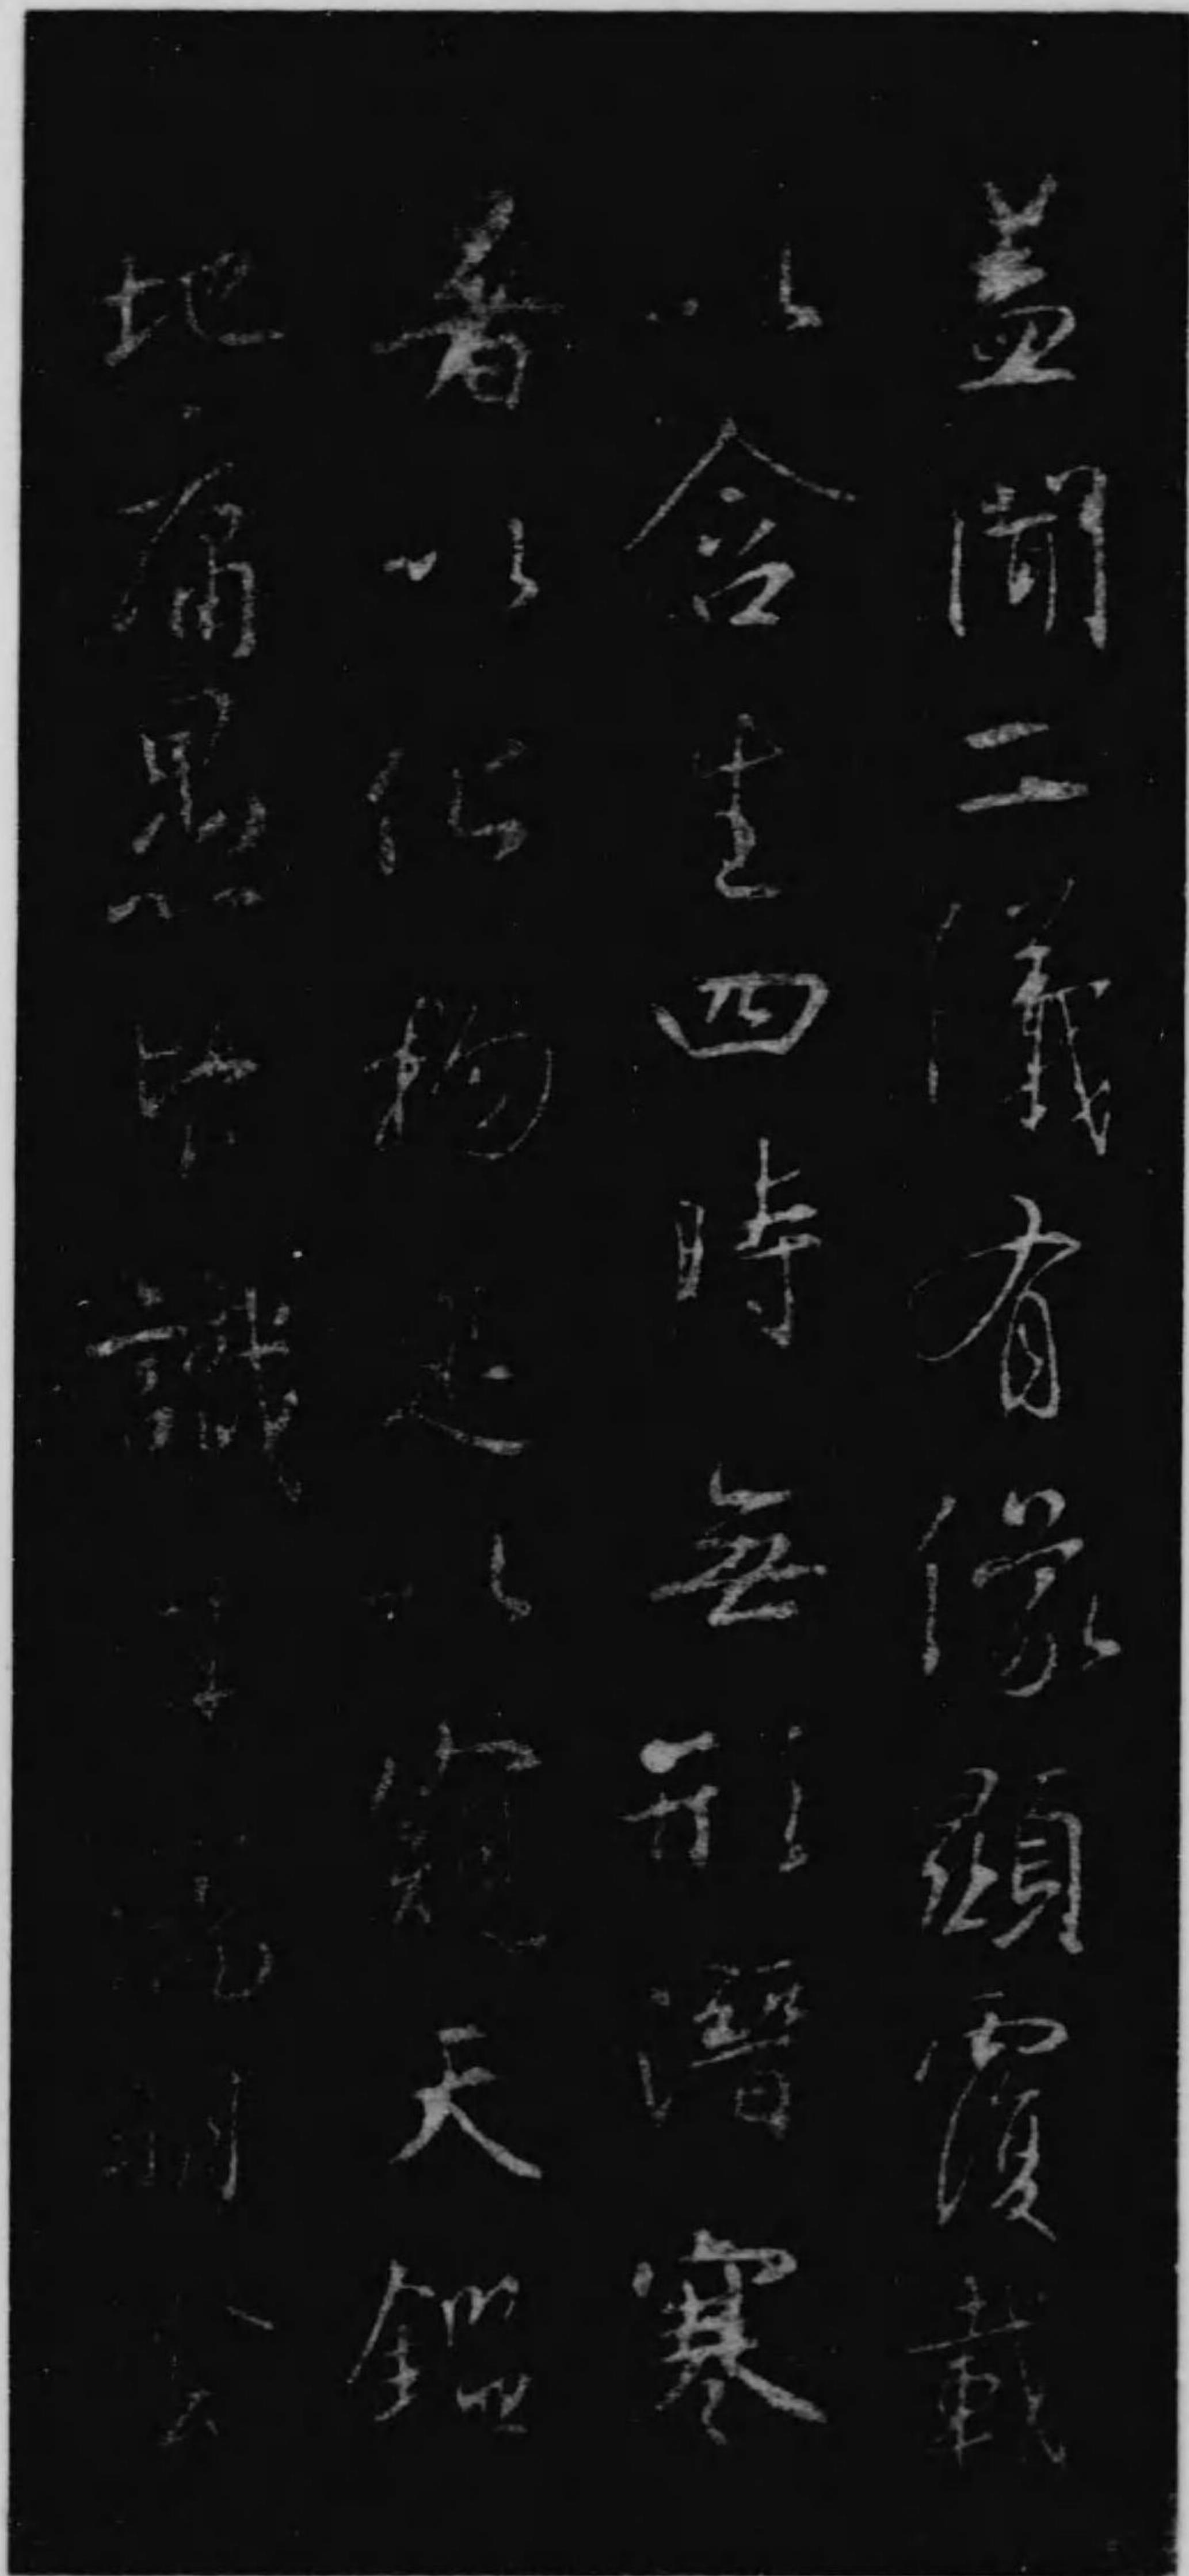 蓋聞二儀有像顯覆載
以含生四時無形潛寒
暑以化物是以窺天鑑
地庸愚皆識端明